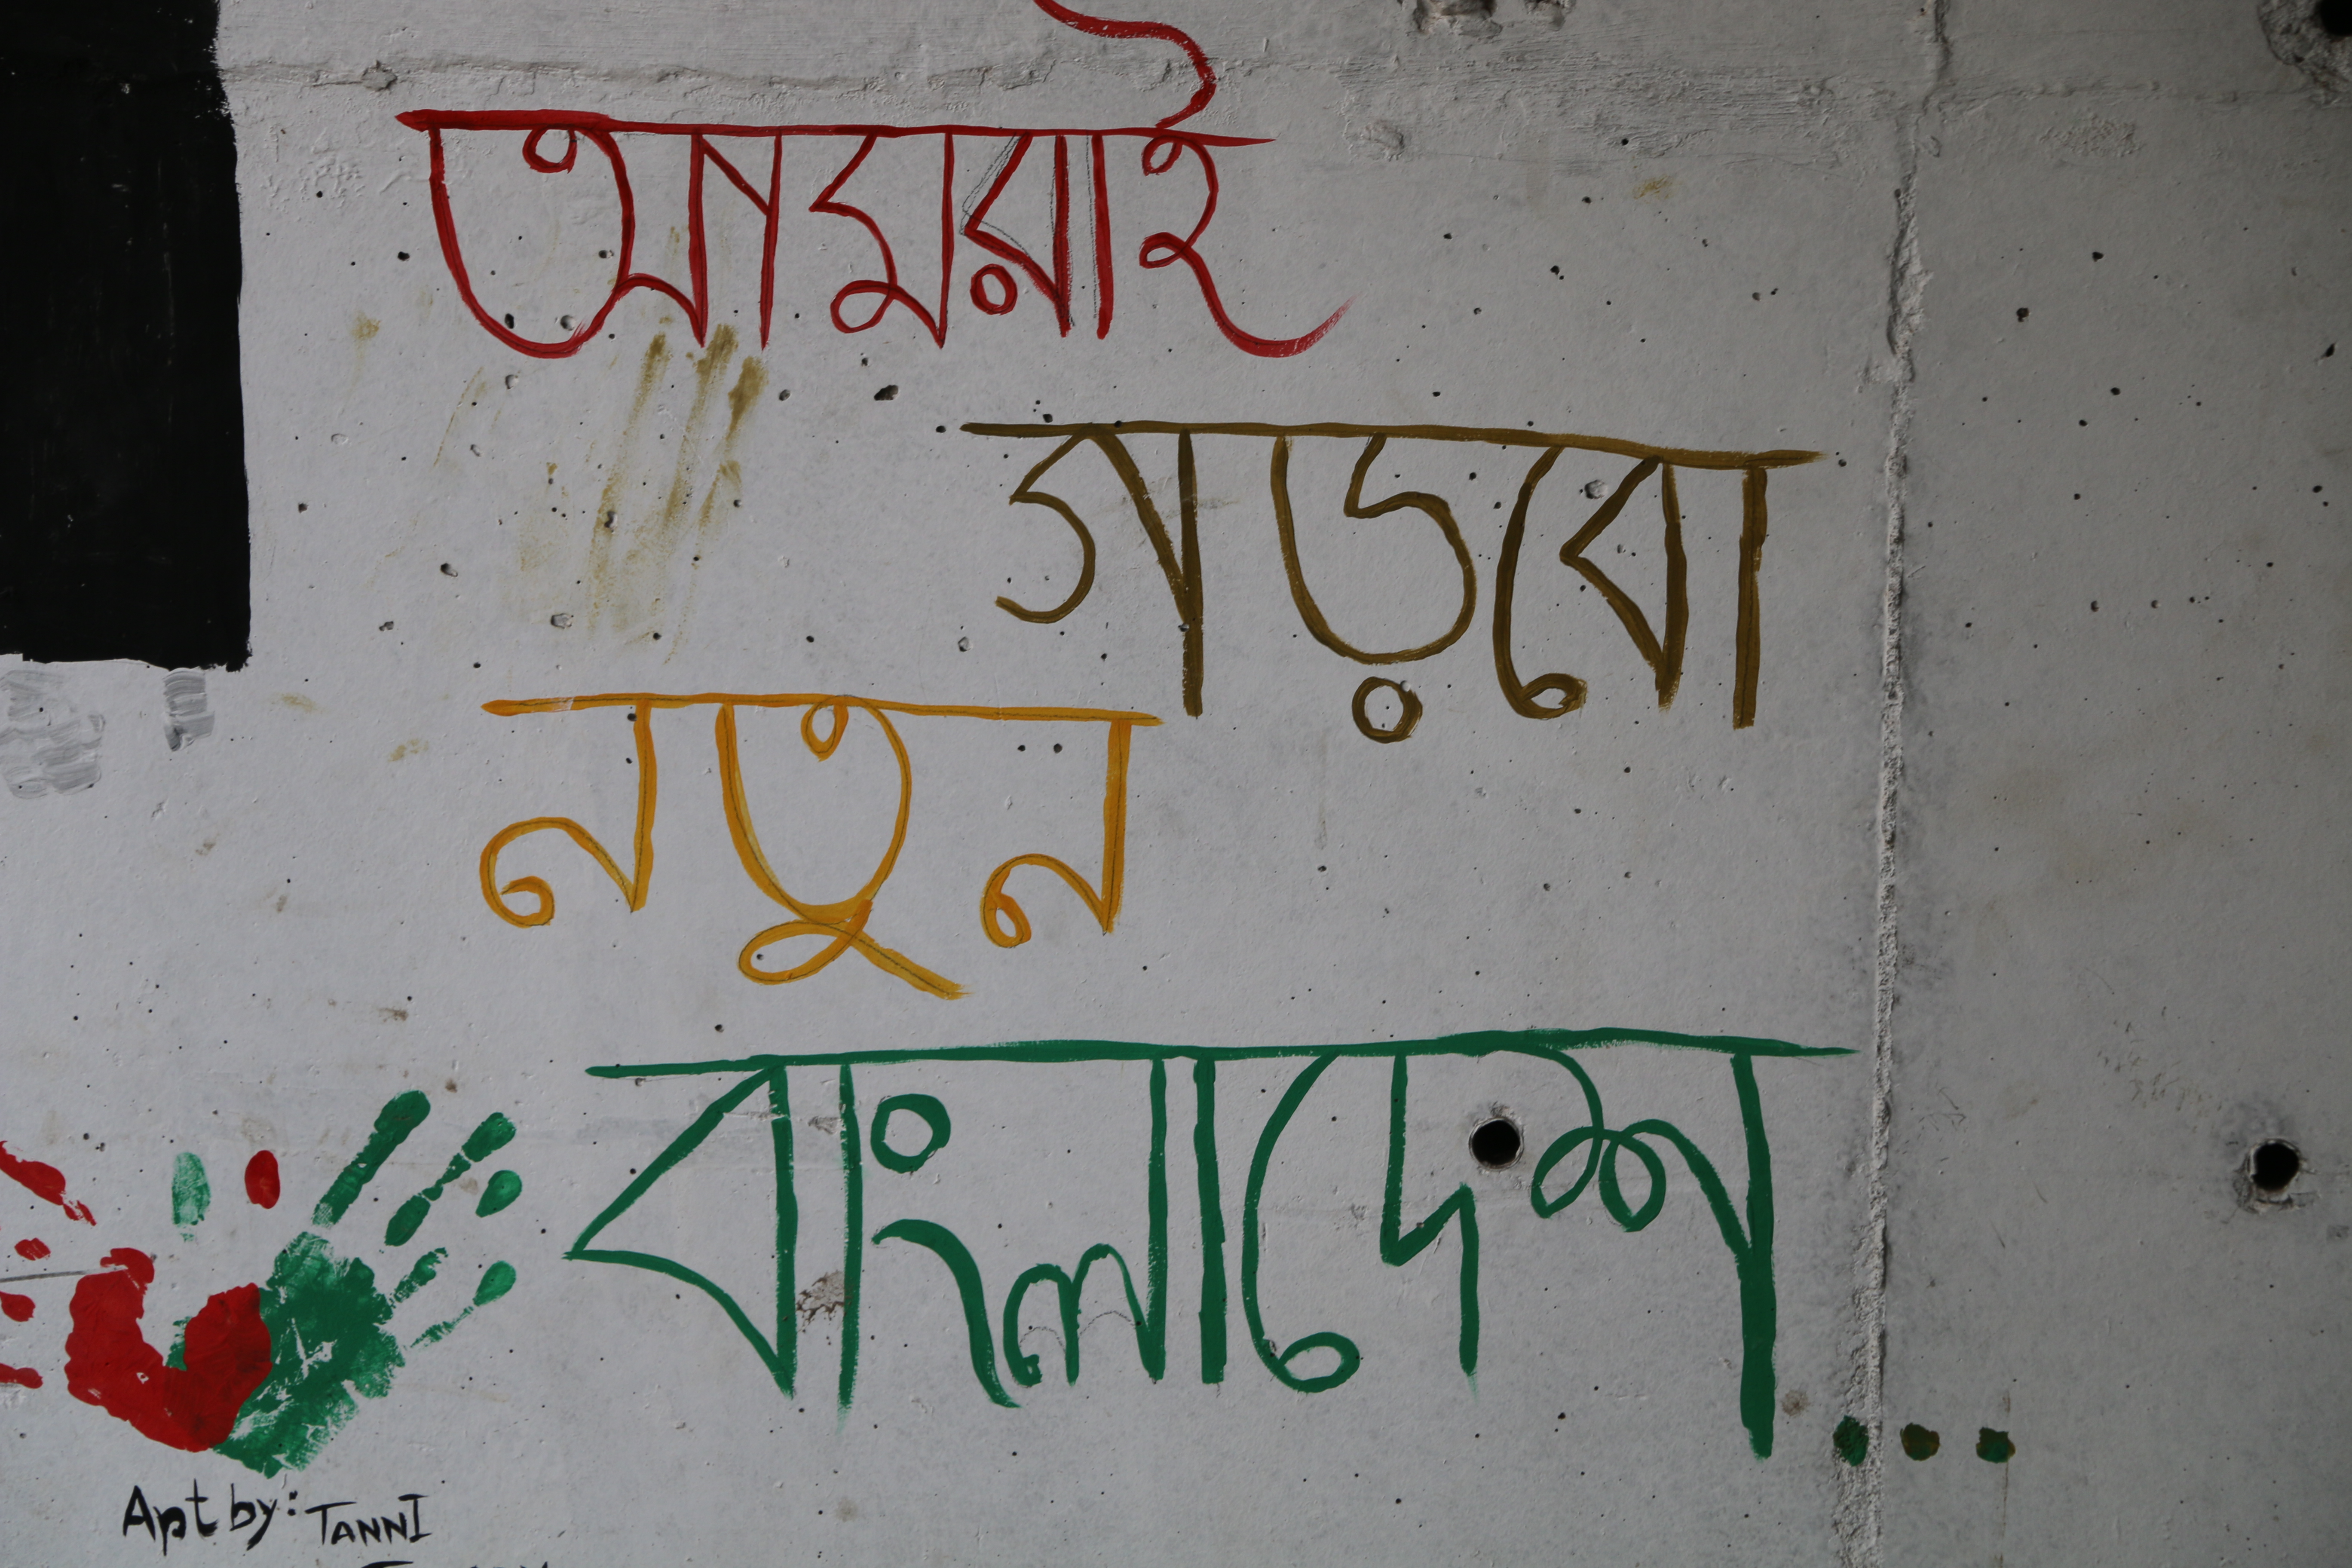 আমরাই
গড়বো
নতুন
বাংলাদেশ...
Art by: TANNI